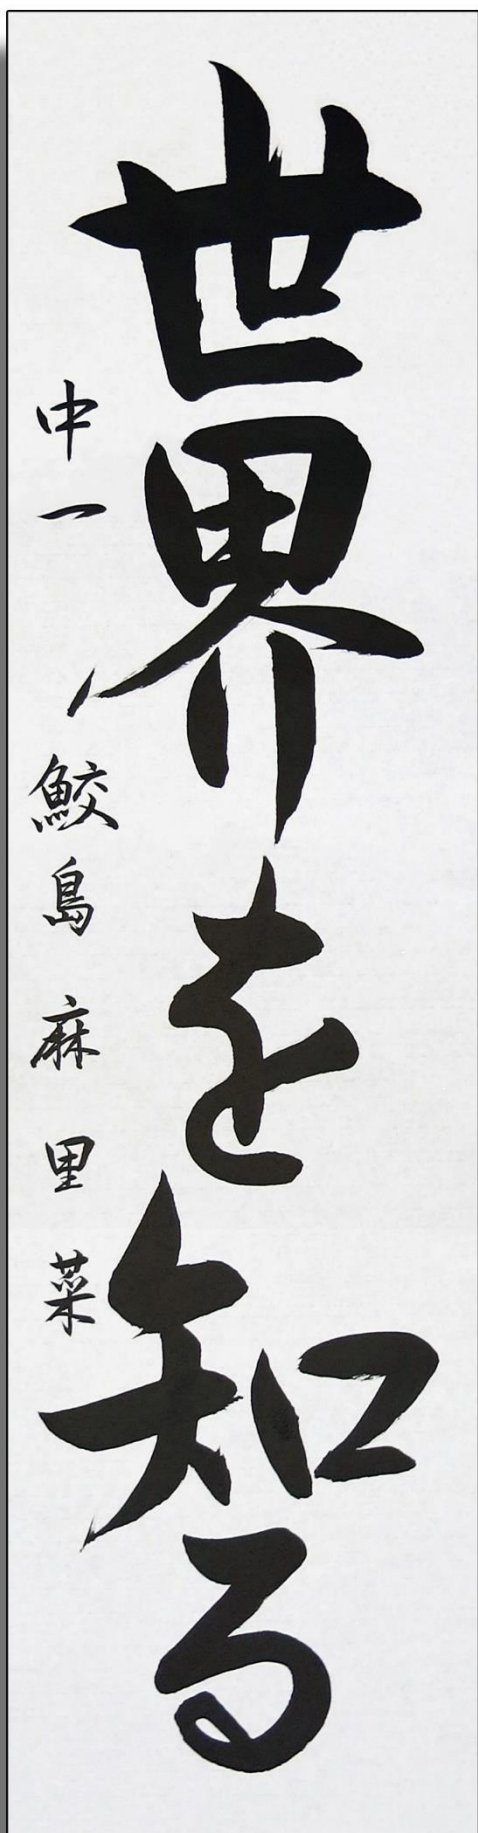 世界を知る
中一 鮫島麻里菜